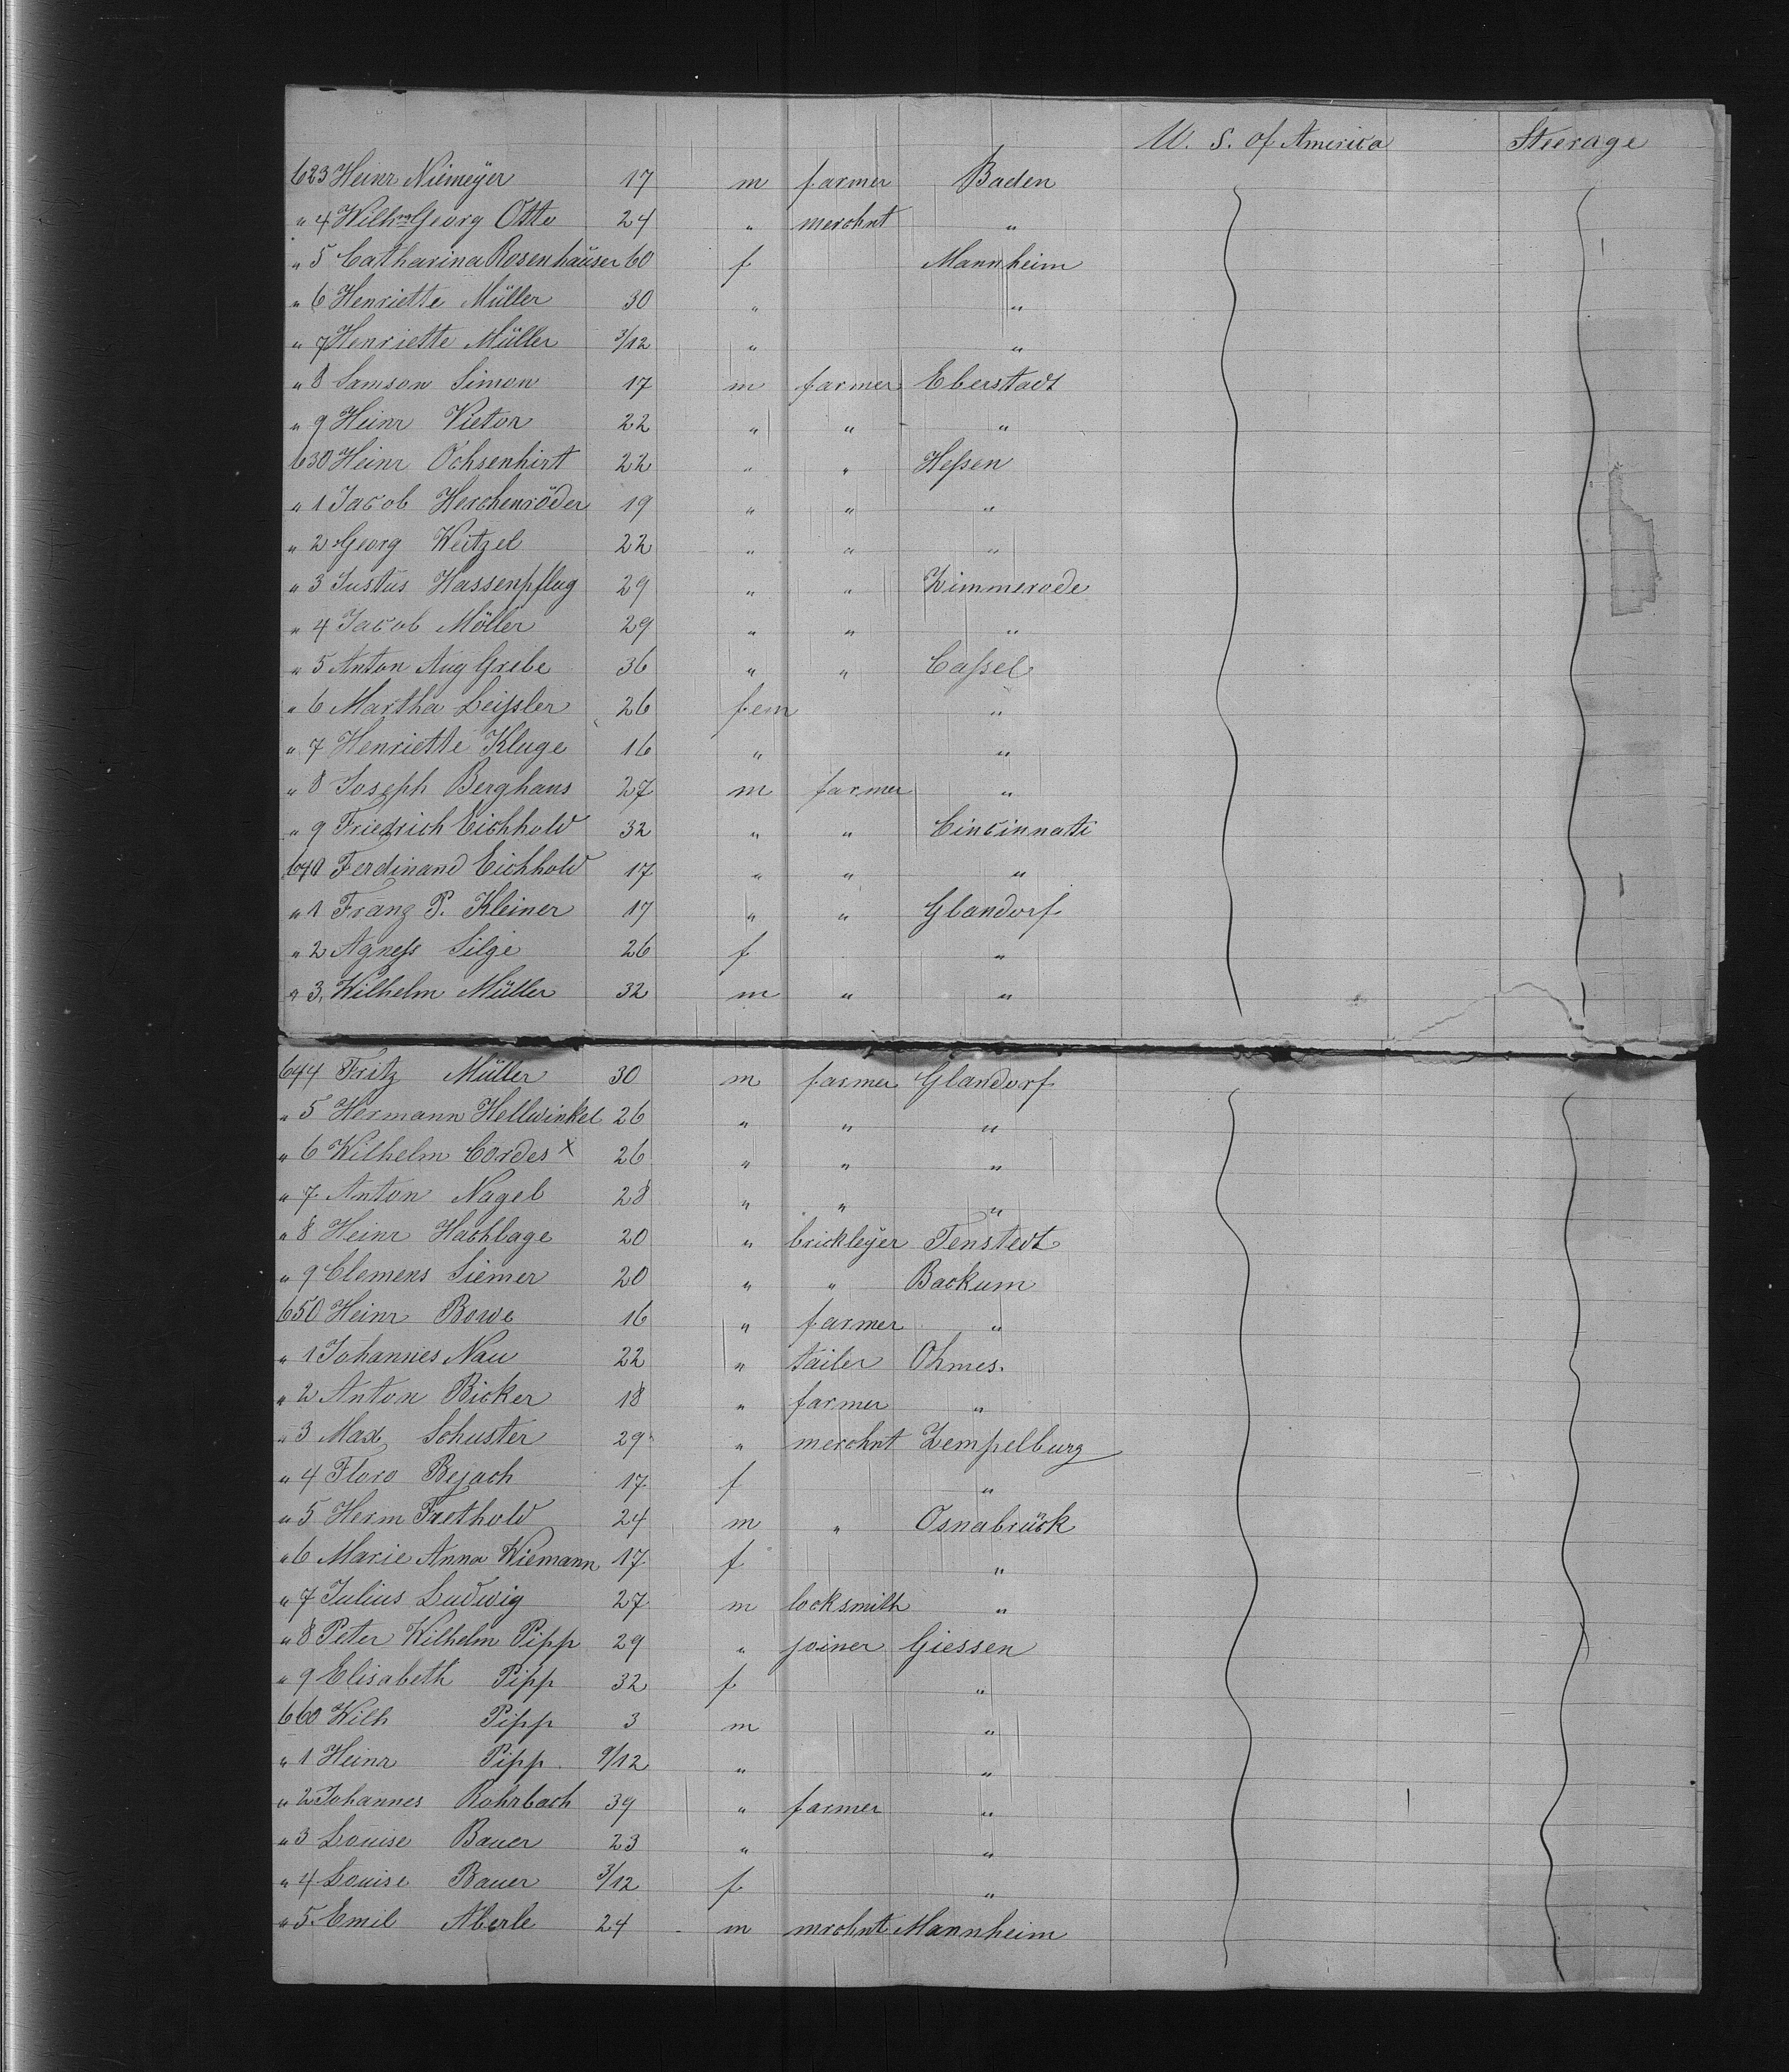 U. S. of America Steerage
623 Heinr Niemeÿer 17 m farmer Baden
" 4 Wilhm Georg Otto 24 " merchnt "
" 5 Catharina Rosenhäuser 60 f Mannheim
" 6 Henriette Müller 30 " "
" 7 Henriette Müller 3/12 " "
" 8 Samson Simon 17 m farmer Eberstadt
" 9 Heinr Vietor 22 " " "
630 Heinr Ochsenhirt 22 " " Heſsen
" 1 Jacob Herchenröder 19 " " "
" 2 Georg Weitzel 22 " " "
" 3 Justus Hassenpflug 29 " " Zimmerode
" 4 Jacob Möller 29 " " "
" 5 Anton Aug Grebe 36 " " Caſsel
" 6 Martha Leiſsler 26 fem "
" 7 Henriette Kluge 16 " "
" 8 Joseph Berghaus 27 m farmer "
" 9 Friedrich Eichhold 32 " " Cincinnati
640 Ferdinand Eichhold 17 " " "
" 1 Franz P. Kleiner 17 " " Glandorf
" 2 Agneſs Silge 26 f "
" 3 Wilhelm Müller 32 m " "
644 Fritz Müller 30 m farmer Glandorf
" 5 Hermann Hellwinkel 26 " " "
" 6 Wilhelm Cordes x 26 " " "
" 7 Anton Nagel 28 " " "
" 8 Heinr Hachlage 20 " brickleÿer Tenstedt
" 9 Clemens Siemer 20 " " Backum
650 Heinr Bowe 16 " farmer "
" 1 Johannes Nau 22 " tailer Ohmes.
" 2 Anton Bicker 18 " farmer "
" 3 Max Schuster 29 " merchnt Zempelburg
" 4 Floro Bejach 17 f "
" 5 Herm Frethold 24 m " Osnabrück
" 6 Marie Anna Wiemann 17 f "
" 7 Julius Ludwig 27 m locksmith "
" 8 Peter Wilhelm Pipp 29 " joiner Giessen
" 9 Elisabeth Pipp 32 f "
660 Wilh Pipp 3 m "
" 1 Heinr Pipp 9/12 " "
" 2 Johannes Rohrbach 39 " farmer "
" 3 Louise Bauer 23 " "
" 4 Louise Bauer 3/12 f "
" 5 Emil Aberle 24 m mrchnt Mannheim